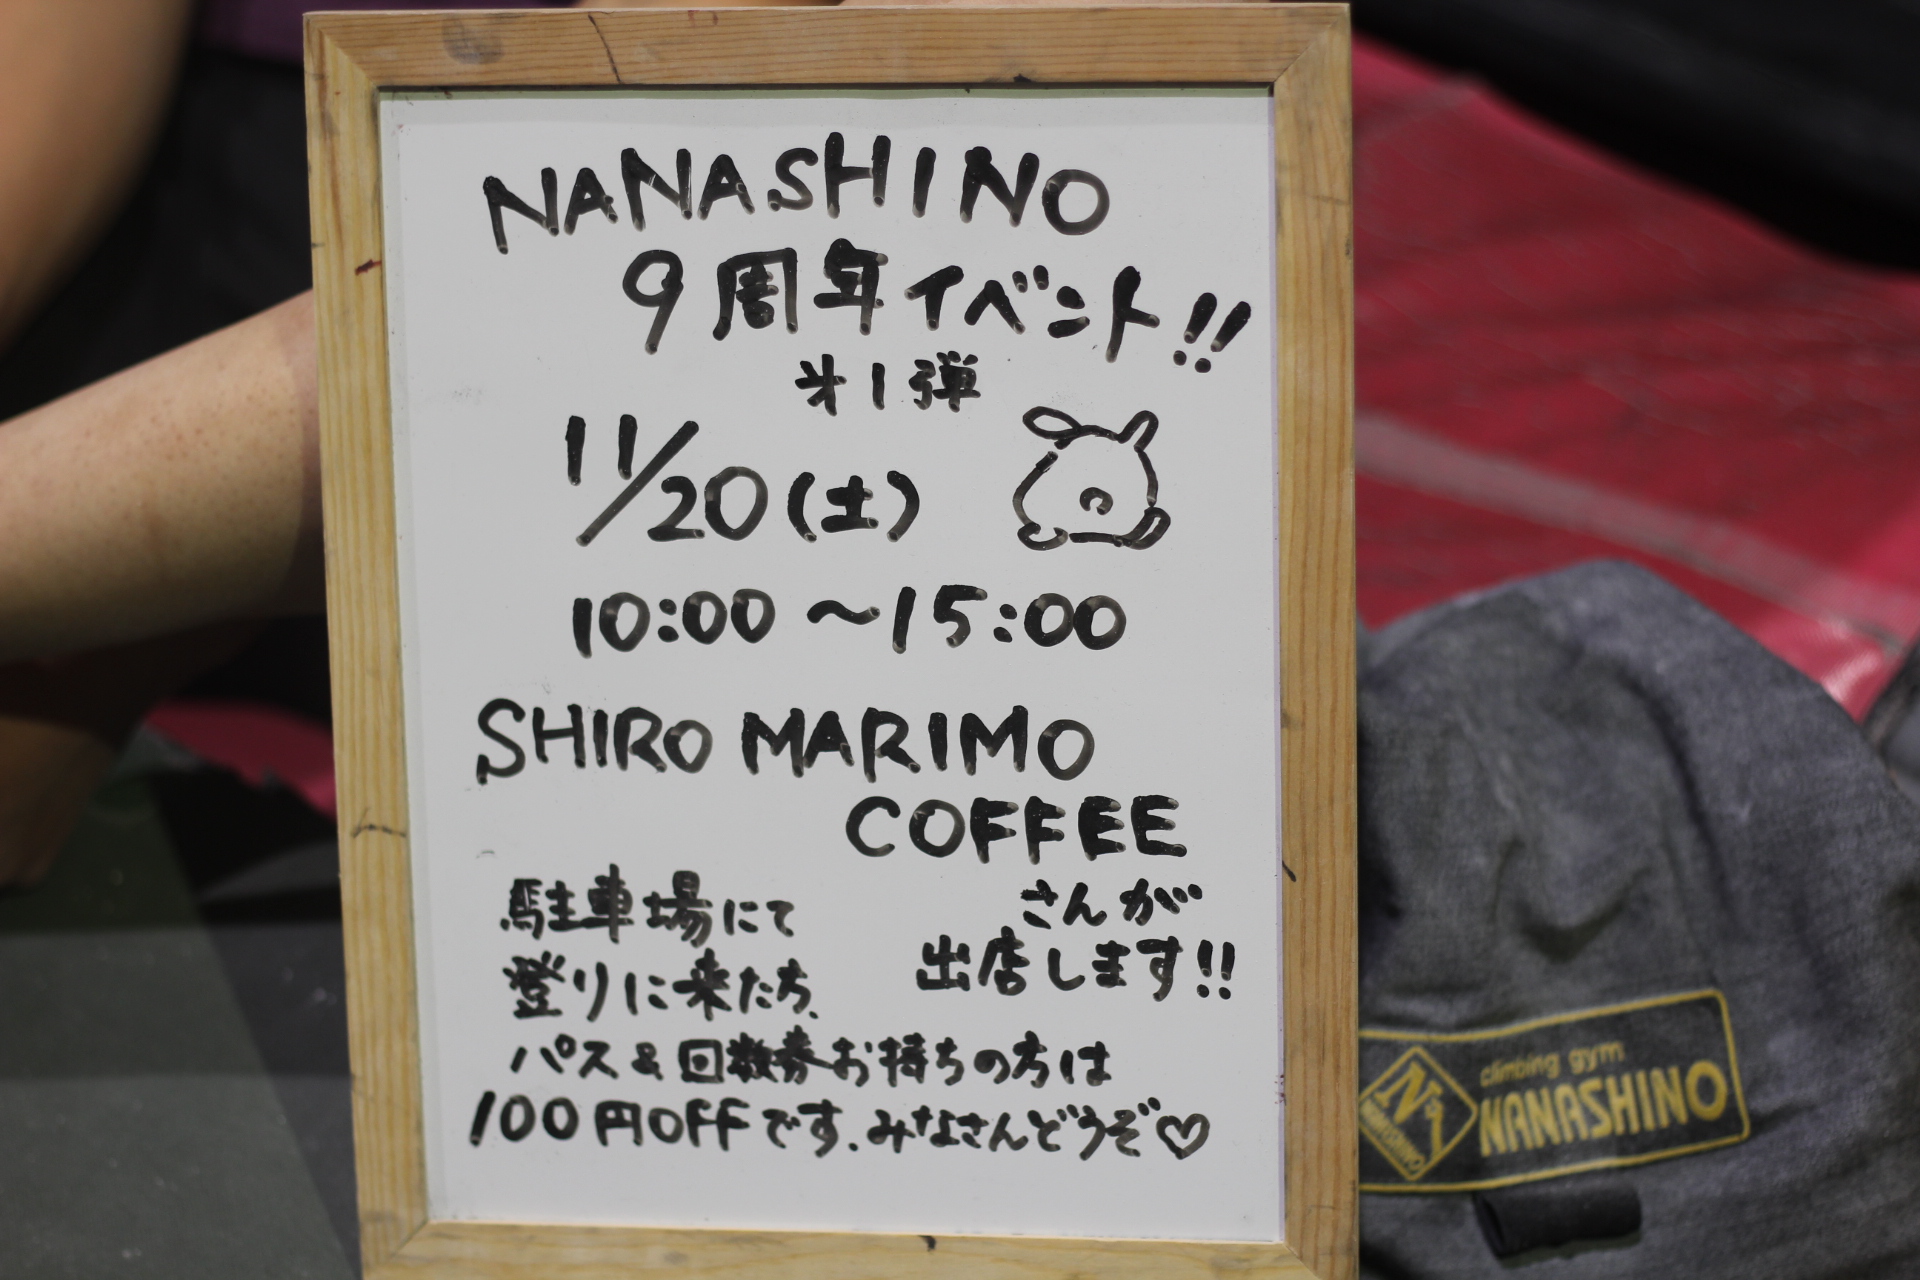 NANASHINO
9周年イベント!!
オ1弾
11/20(土)
10:00〜15:00
SHIRO MARIMO
COFFEE
さんが
出店します!!
駐車場にて
登りに来たら、
パス&回数券お持ちの方は
100円OFFです.みなさんどうぞ♡
climbing gym
NANASHINO